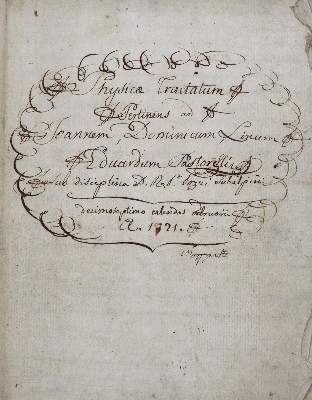 Physicæ Tractatum
Pertinens ad
Joannem, Dominicum Linum
Eduardum Pastorelli
sub disciplina D.
decimoseptimo calendas
A. 1771.